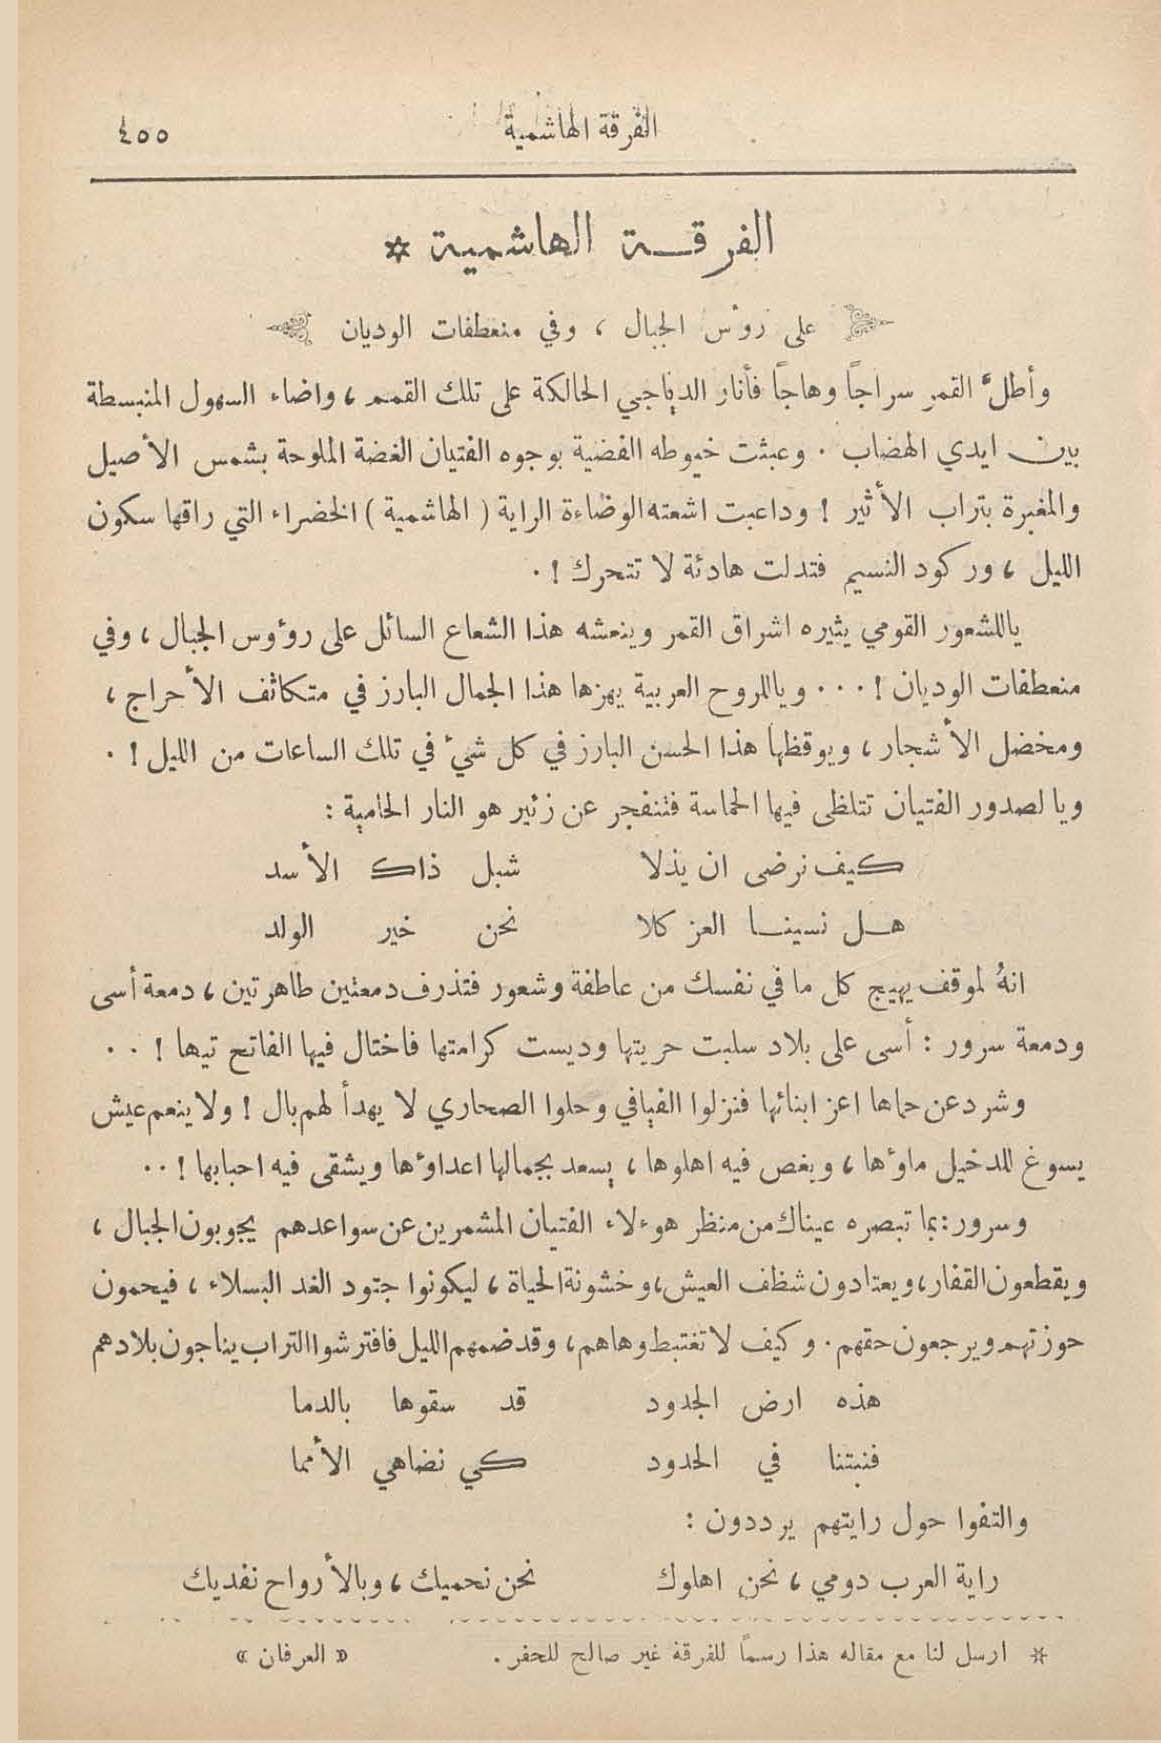 الفرقة الهاشمية
٤٥٥
الفرقة الهاشمية *
على رؤس الجبال ، وفي منعطفات الوديان
وأطلّ القمر سراجاً وهاجاً فأنار الدياجي الحالكة على تلك القمم ، واضاء السهول المنبسطة
بين ايدي الهضاب . وعبثت خيوطه الفضية بوجوه الفتيان الغضة الملوحة بشمس الأصيل
والمغبرة بتراب الأثير ! وداعبت اشعته الوضاءة الراية ( الهاشمية ) الخضراء التي راقها سكون
الليل ، وركود النسيم فتدلت هادئة لا تتحرك ! .
ياللشعور القومي يثيره اشراق القمر وينعشه هذا الشعاع السائل على روؤوس الجبال ، وفي
منعطفات الوديان ! . . . وياللروح العربية يهزها هذا الجمال البارز في متكاثف الأحراج ،
ومخضل الأشجار ، ويوقظها هذا الحسن البارز في كل شيء في تلك الساعات من الليل ! .
ويا لصدور الفتيان تتلظى فيها الحماسة فتنفجر عن زئير هو النار الحامية :
كيف نرضى ان يذلا شبل ذاك الأسد
هل نسينا العز كلا نحن خير الولد
انهُ لموقف يهيج كل ما في نفسك من عاطفة وشعور فتذرف دمعتين طاهرتين ، دمعة أسى
ودمعة سرور : أسى على بلاد سلبت حريتها وديست كرامتها فاختال فيها الفاتح تيها ! . .
وشرد عن حماها اعز ابنائها فنزلوا الفيافي وحلوا الصحاري لا يهدأ لهم بال ! ولا ينعم عيش
يسوغ للدخيل ماوؤها ، ويغص فيه اهلوها ، يسعد بجمالها اعداوؤها ويشقى فيه احبابها ! . .
وسرور : بما تبصره عيناك من منظر هوءلاء الفتيان المشمرين عن سواعدهم يجوبون الجبال ،
ويقطعون القفار ، ويعتادون شظف العيش ، وخشونة الحياة ، ليكونوا جنود الغد البسلاء ، فيحمون
حوزتهم ويرجعون حقهم . وكيف لا تغتبط وهاهم ، وقد ضمهم الليل فافترشوا التراب يناجون بلادهم
هذه ارض الجدود قد سقوها بالدما
فنبتنا في الحدود كي نضاهي الأمما
والتفوا حول رايتهم يرددون :
راية العرب دومي ، نحن اهلوك نحن نحميك ، وبالأرواح نفديك
* ارسل لنا مع مقاله هذا رسماً للفرقة غير صالح للحفر . « العرفان »